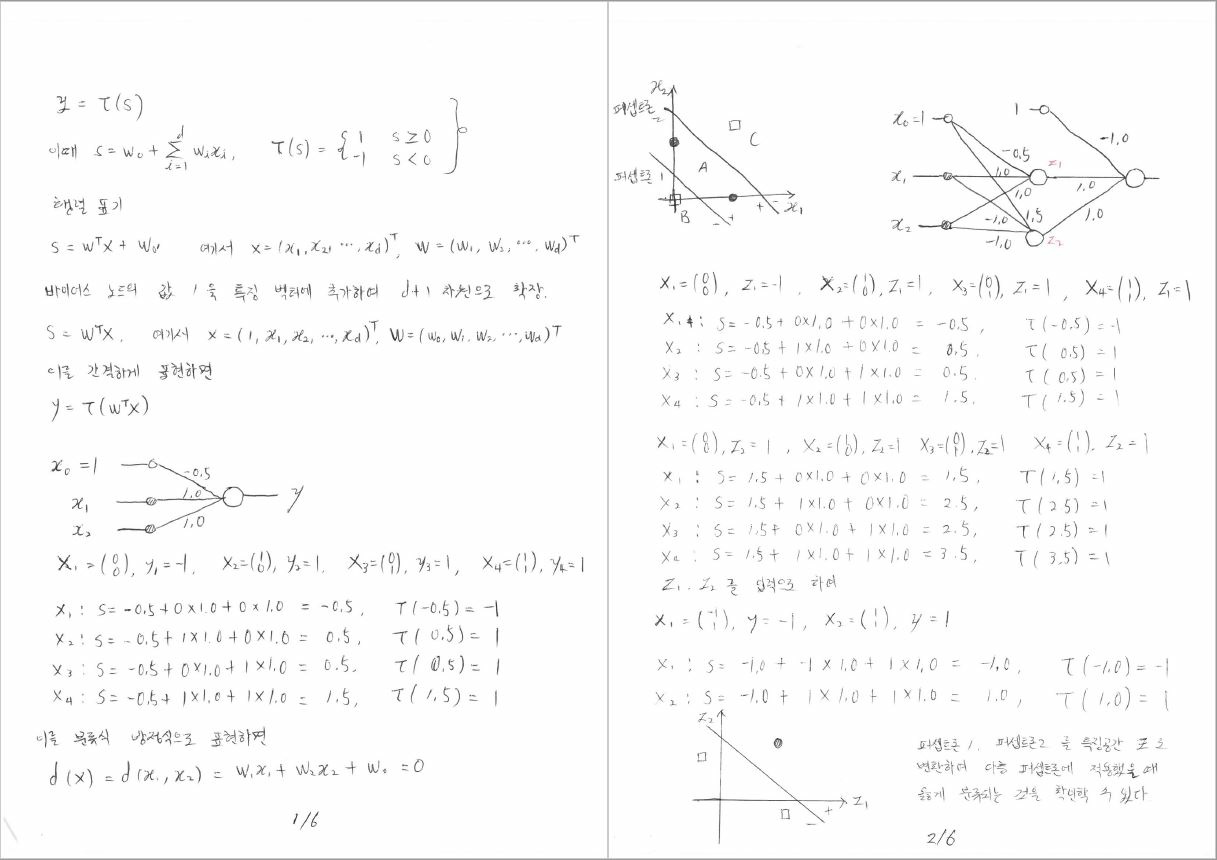 y = τ(s)
이때 s = w₀ + Σ_{i=1}^{d} wᵢxᵢ, τ(s) = { 1 s ≥ 0
-1 s < 0
행렬 표기
s = wᵀx + w₀. 여기서 x = (x₁, x₂, ..., x_d)ᵀ, w = (w₁, w₂, ..., w_d)ᵀ
바이어스 노드의 값 1 을 특징 벡터에 추가하여 d+1 차원으로 확장.
s = wᵀx. 여기서 x = (1, x₁, x₂, ..., x_d)ᵀ, w = (w₀, w₁, w₂, ..., w_d)ᵀ
이를 간략하게 표현하면
y = τ(wᵀx)
x₀ = 1
-0.5
x₁
1.0
y
x₂
1.0
x₁ = (0 0), y₁ = -1, x₂ = (1 0), y₂ = 1, x₃ = (0 1), y₃ = 1, x₄ = (1 1), y₄ = 1
x₁ : s = -0.5 + 0×1.0 + 0×1.0 = -0.5, τ(-0.5) = -1
x₂ : s = -0.5 + 1×1.0 + 0×1.0 = 0.5, τ(0.5) = 1
x₃ : s = -0.5 + 0×1.0 + 1×1.0 = 0.5. τ(0.5) = 1
x₄ : s = -0.5 + 1×1.0 + 1×1.0 = 1.5, τ(1.5) = 1
이를 분류식 방정식으로 표현하면
d(x) = d(x₁, x₂) = w₁x₁ + w₂x₂ + w₀ = 0
1/6
x₂
퍼셉트론
2
C
A
퍼셉트론 1
B
- +
+ -
x₁
x₀ = 1
1
-1.0
-0.5
z₁
x₁
1.0
1.0
1.0
-1.0
1.5
1.0
x₂
-1.0
z₂
x₁ = (0 0), z₁ = -1, x₂ = (1 0), z₁ = 1, x₃ = (0 1), z₁ = 1, x₄ = (1 1), z₁ = 1
x₁ : s = -0.5 + 0×1.0 + 0×1.0 = -0.5, τ(-0.5) = -1
x₂ : s = -0.5 + 1×1.0 + 0×1.0 = 0.5. τ(0.5) = 1
x₃ : s = -0.5 + 0×1.0 + 1×1.0 = 0.5. τ(0.5) = 1
x₄ : s = -0.5 + 1×1.0 + 1×1.0 = 1.5. τ(1.5) = 1
x₁ = (0 0), z₂ = 1, x₂ = (1 0), z₂ = 1 x₃ = (0 1), z₂ = 1 x₄ = (1 1), z₂ = 1
x₁ : s = 1.5 + 0×1.0 + 0×1.0 = 1.5, τ(1.5) = 1
x₂ : s = 1.5 + 1×1.0 + 0×1.0 = 2.5, τ(2.5) = 1
x₃ : s = 1.5 + 0×1.0 + 1×1.0 = 2.5, τ(2.5) = 1
x₄ : s = 1.5 + 1×1.0 + 1×1.0 = 3.5, τ(3.5) = 1
z₁, z₂ 를 입력으로 하여
x₁ = (-1 1), y = -1, x₂ = (1 1), y = 1
x₁ : s = -1.0 + -1×1.0 + 1×1.0 = -1.0, τ(-1.0) = -1
x₂ : s = -1.0 + 1×1.0 + 1×1.0 = 1.0, τ(1.0) = 1
z₂
z₁
- +
퍼셉트론 1, 퍼셉트론 2 를 특징공간 으로
변환하여 다층 퍼셉트론에 적용했을 때
옳게 분류되는 것을 확인할 수 있다
2/6